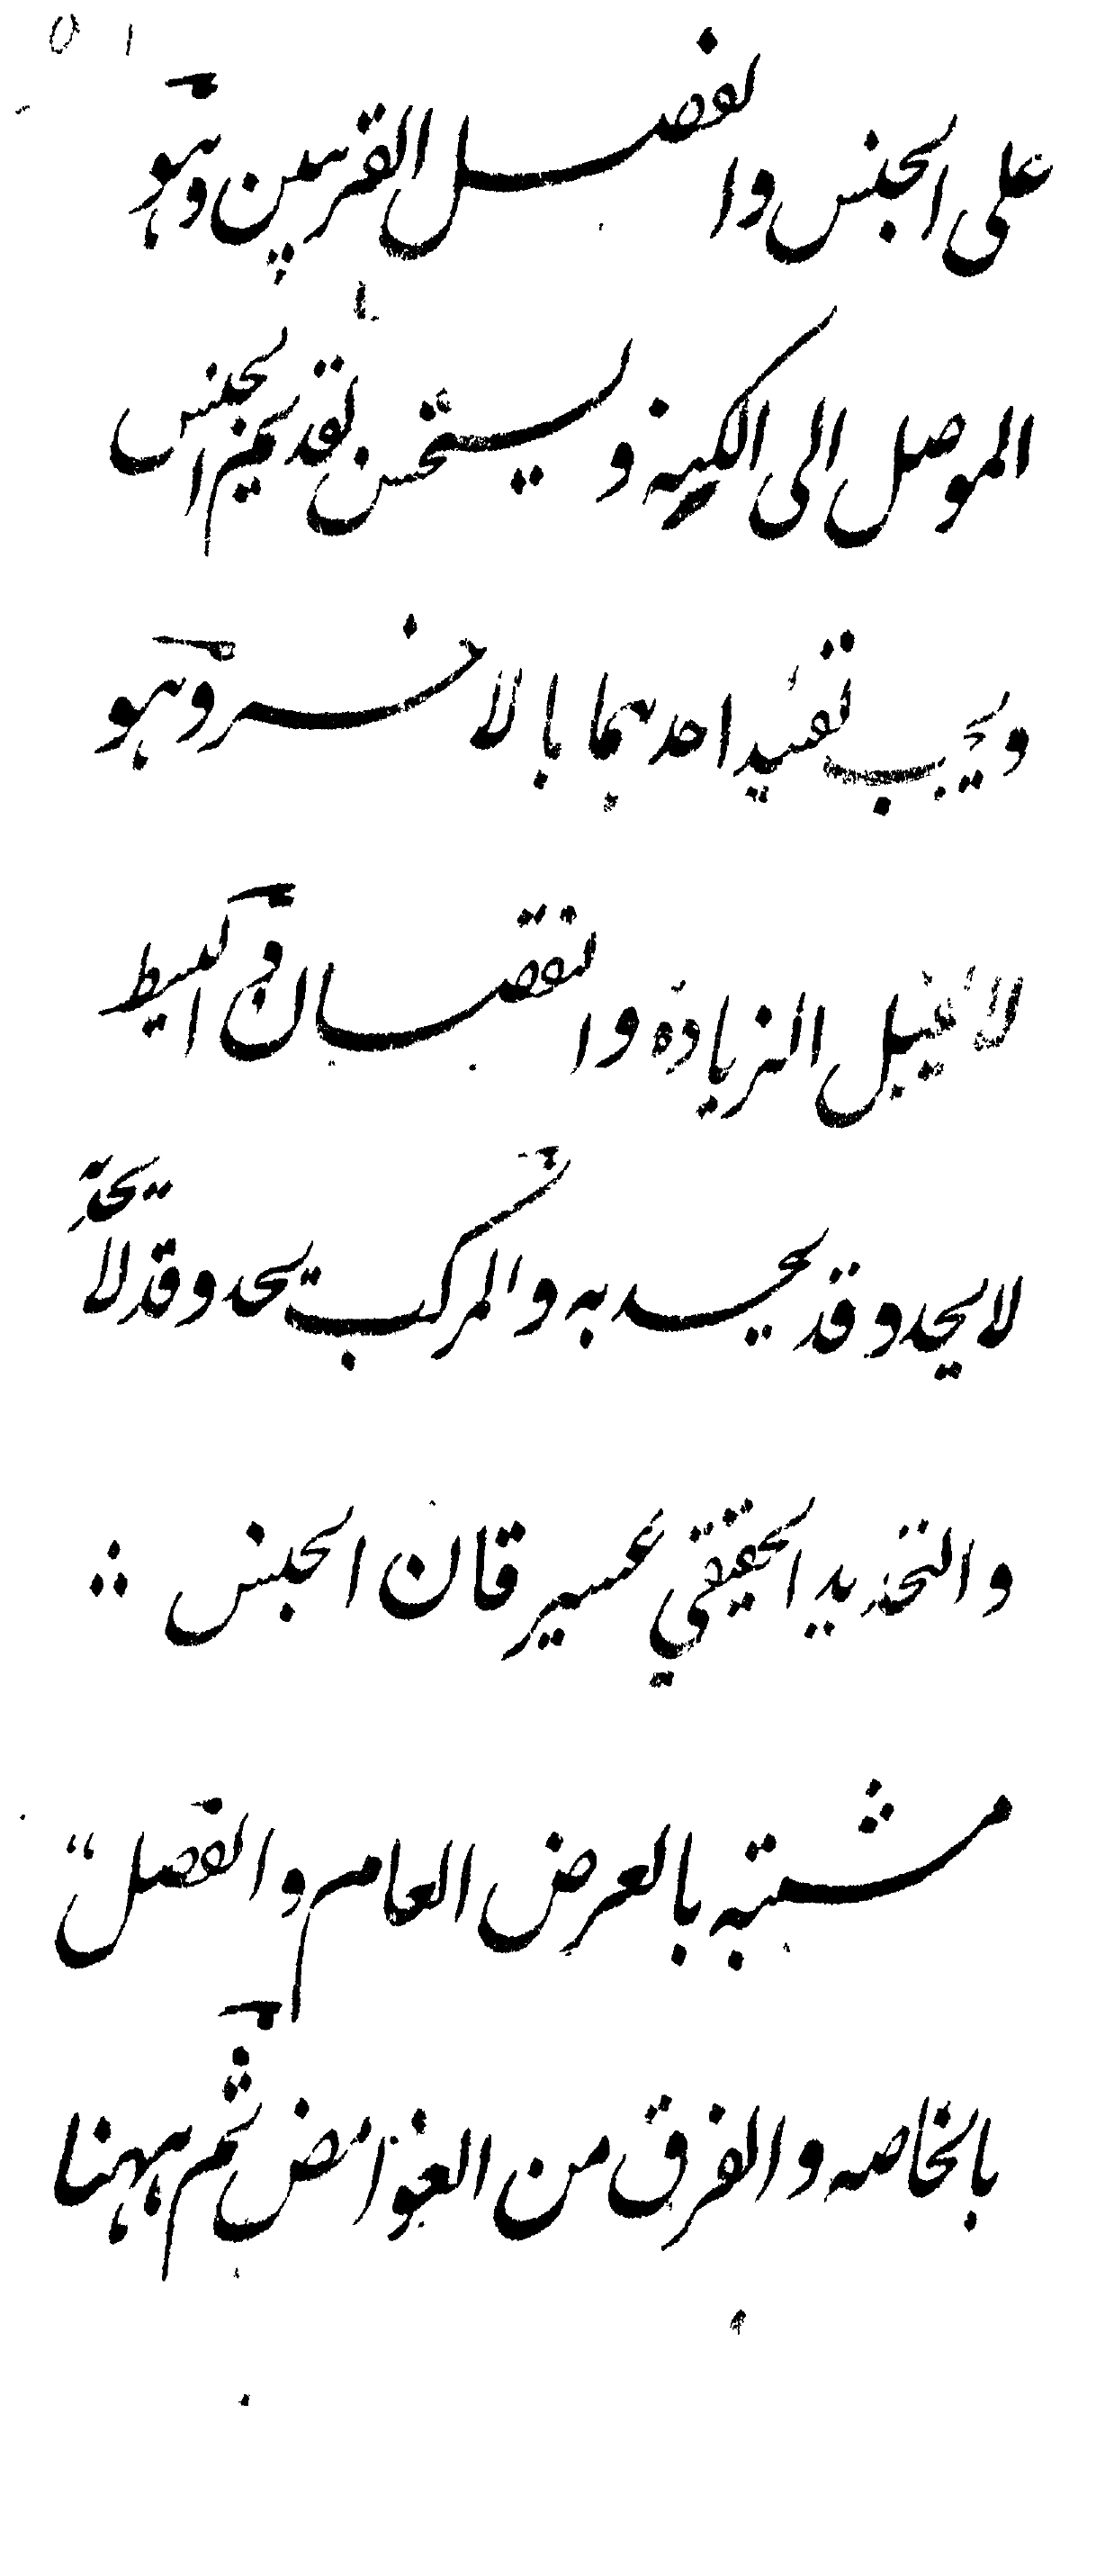 على الجنس والفصل القريبين وهو
الموصل الى الكنه ويستحسن تقديم الجنس
ويجب تقييد احدهما بالاخر وهو
لا يقبل الزيادة والنقصان والبسيط
لا يحد وقد يحد به والمركب يحد وقد لا يحد به
والتحديد الحقيقي عسير فان الجنس
مشتبه بالعرض العام والفصل
بالخاصه والفرق من الغوامض ثم ههنا